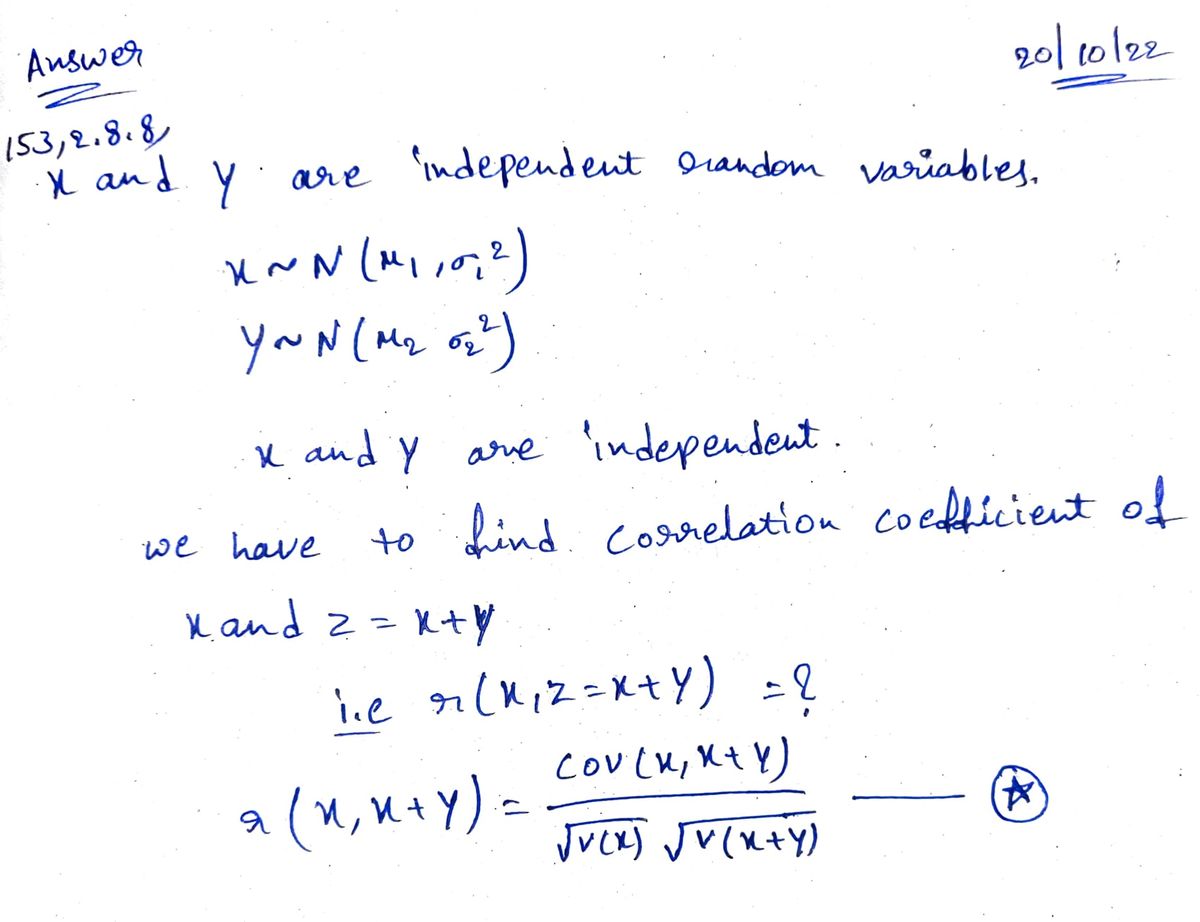 Answer
20/10/22
153,2.8.8,
x and y are independent random variables.
x ~ N (μ1, σ1²)
y ~ N ( μ2 σ2²)
x and y are independent.
we have to find correlation coefficient of
x and z = x+y
i.e r(x, z = x+y) = ?
r (x, x+y) = cov (x, x+y) / √v(x) √v(x+y) —— ☆